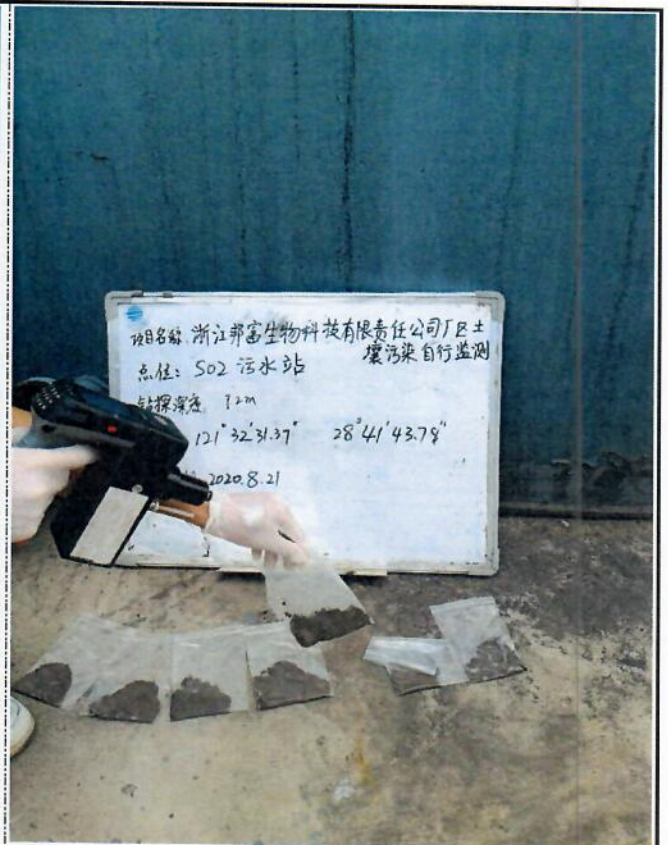 项目名称：浙江邦富生物科技有限责任公司厂区土
壤污染自行监测
点位：S02 污水站
钻探深度
121°32'31.37" 28°41'43.79"
2020.8.21